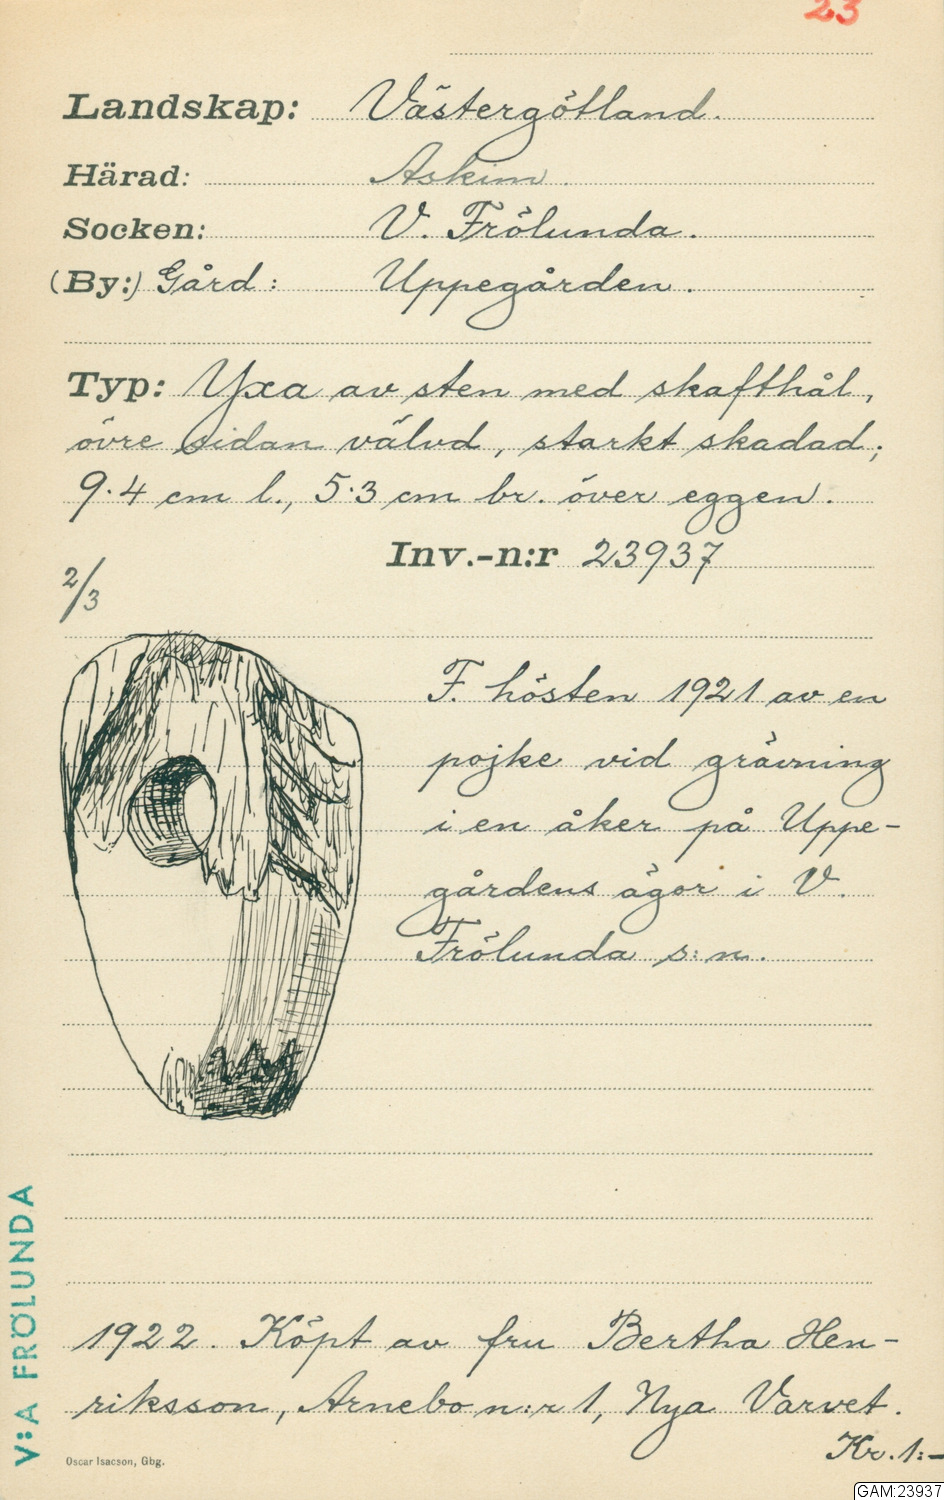 23
Landskap: Västergötland.
Härad: Askim.
Socken: V. Frölunda.
(By:) Gård: Uppegården.
Typ: Yxa av sten med skafthål,
övre sidan välvd, starkt skadad;
9.4 cm l., 5.3 cm br. över eggen.
Inv.-n:r 23937
2/3
F. hösten 1921 av en
pojke vid grävning
i en åker på Uppe-
gårdens ägor i V.
Frölunda s:n.
1922. Köpt av fru Bertha Hen-
riksson, Arnebo n:r 1, Nya Varvet.
Kr. 1:-
V:A FRÖLUNDA
Oscar Isacson, Gbg.
GAM:23937